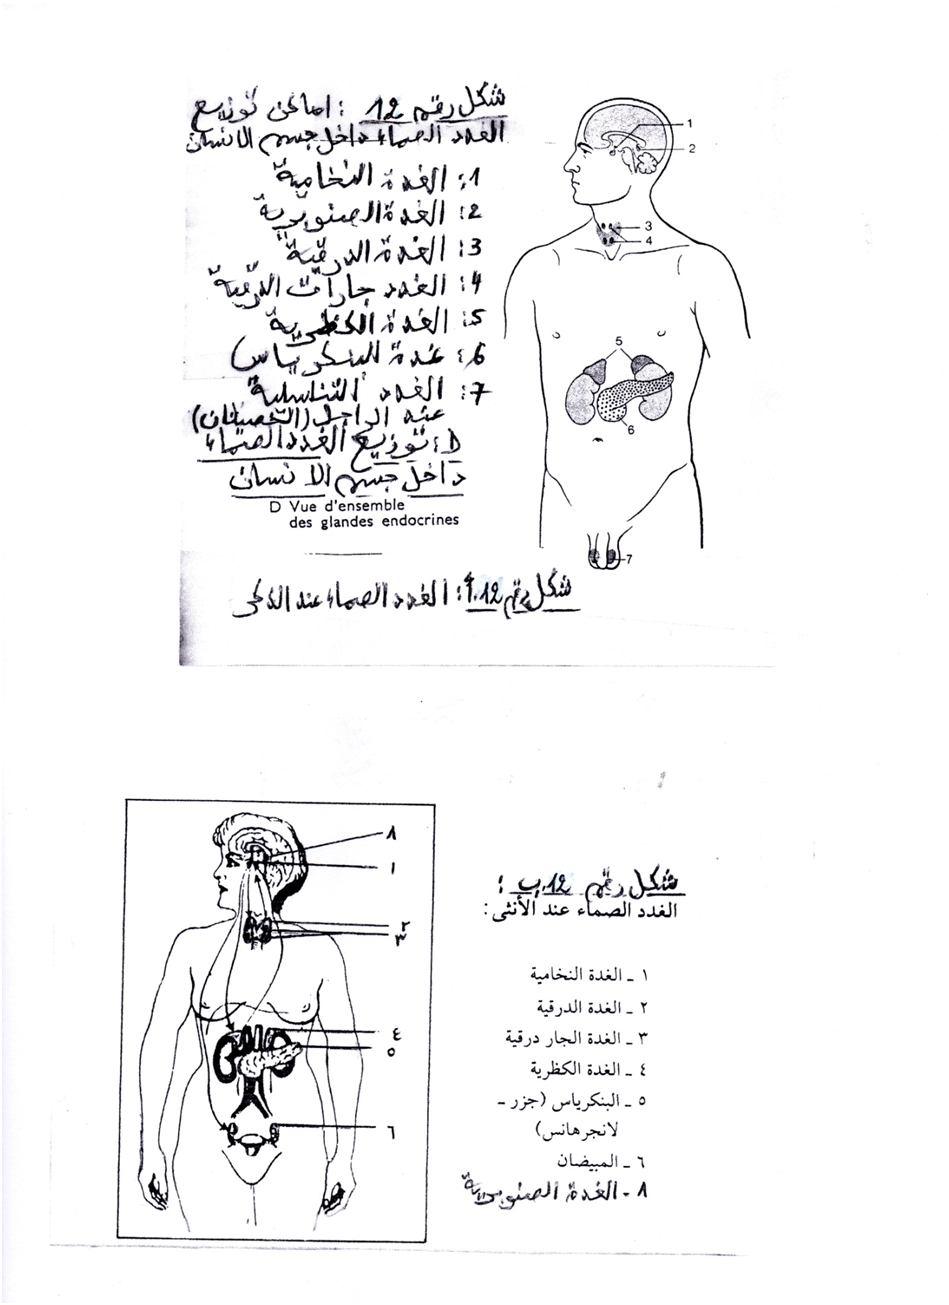 شكل رقم 12 : اماكن توزيع
الغدد الصماء داخل جسم الانسان
1: الغدة النخامية
2: الغدة الصنوبرية
3: الغدة الدرقية
4: الغدد جارات الدرقية
5: الغدة الكظرية
6: غدة البنكرياس
7: الغدد التناسلية
عند الراجل (الخصيتان)
D: توزيع الغدد الصماء
داخل جسم الانسان
D Vue d'ensemble
des glandes endocrines
1
2
3
4
5
6
7
شكل رقم 12.أ: الغدد الصماء عند الذكر
٨
١
٢
٣
٤
٥
٦
شكل رقم 12.ب :
الغدد الصماء عند الأنثى:
١ ـ الغدة النخامية
٢ ـ الغدة الدرقية
٣ ـ الغدة الجار درقية
٤ ـ الغدة الكظرية
٥ ـ البنكرياس (جزر ـ
لانجرهانس)
٦ ـ المبيضان
٨ - الغدة الصنوبرية